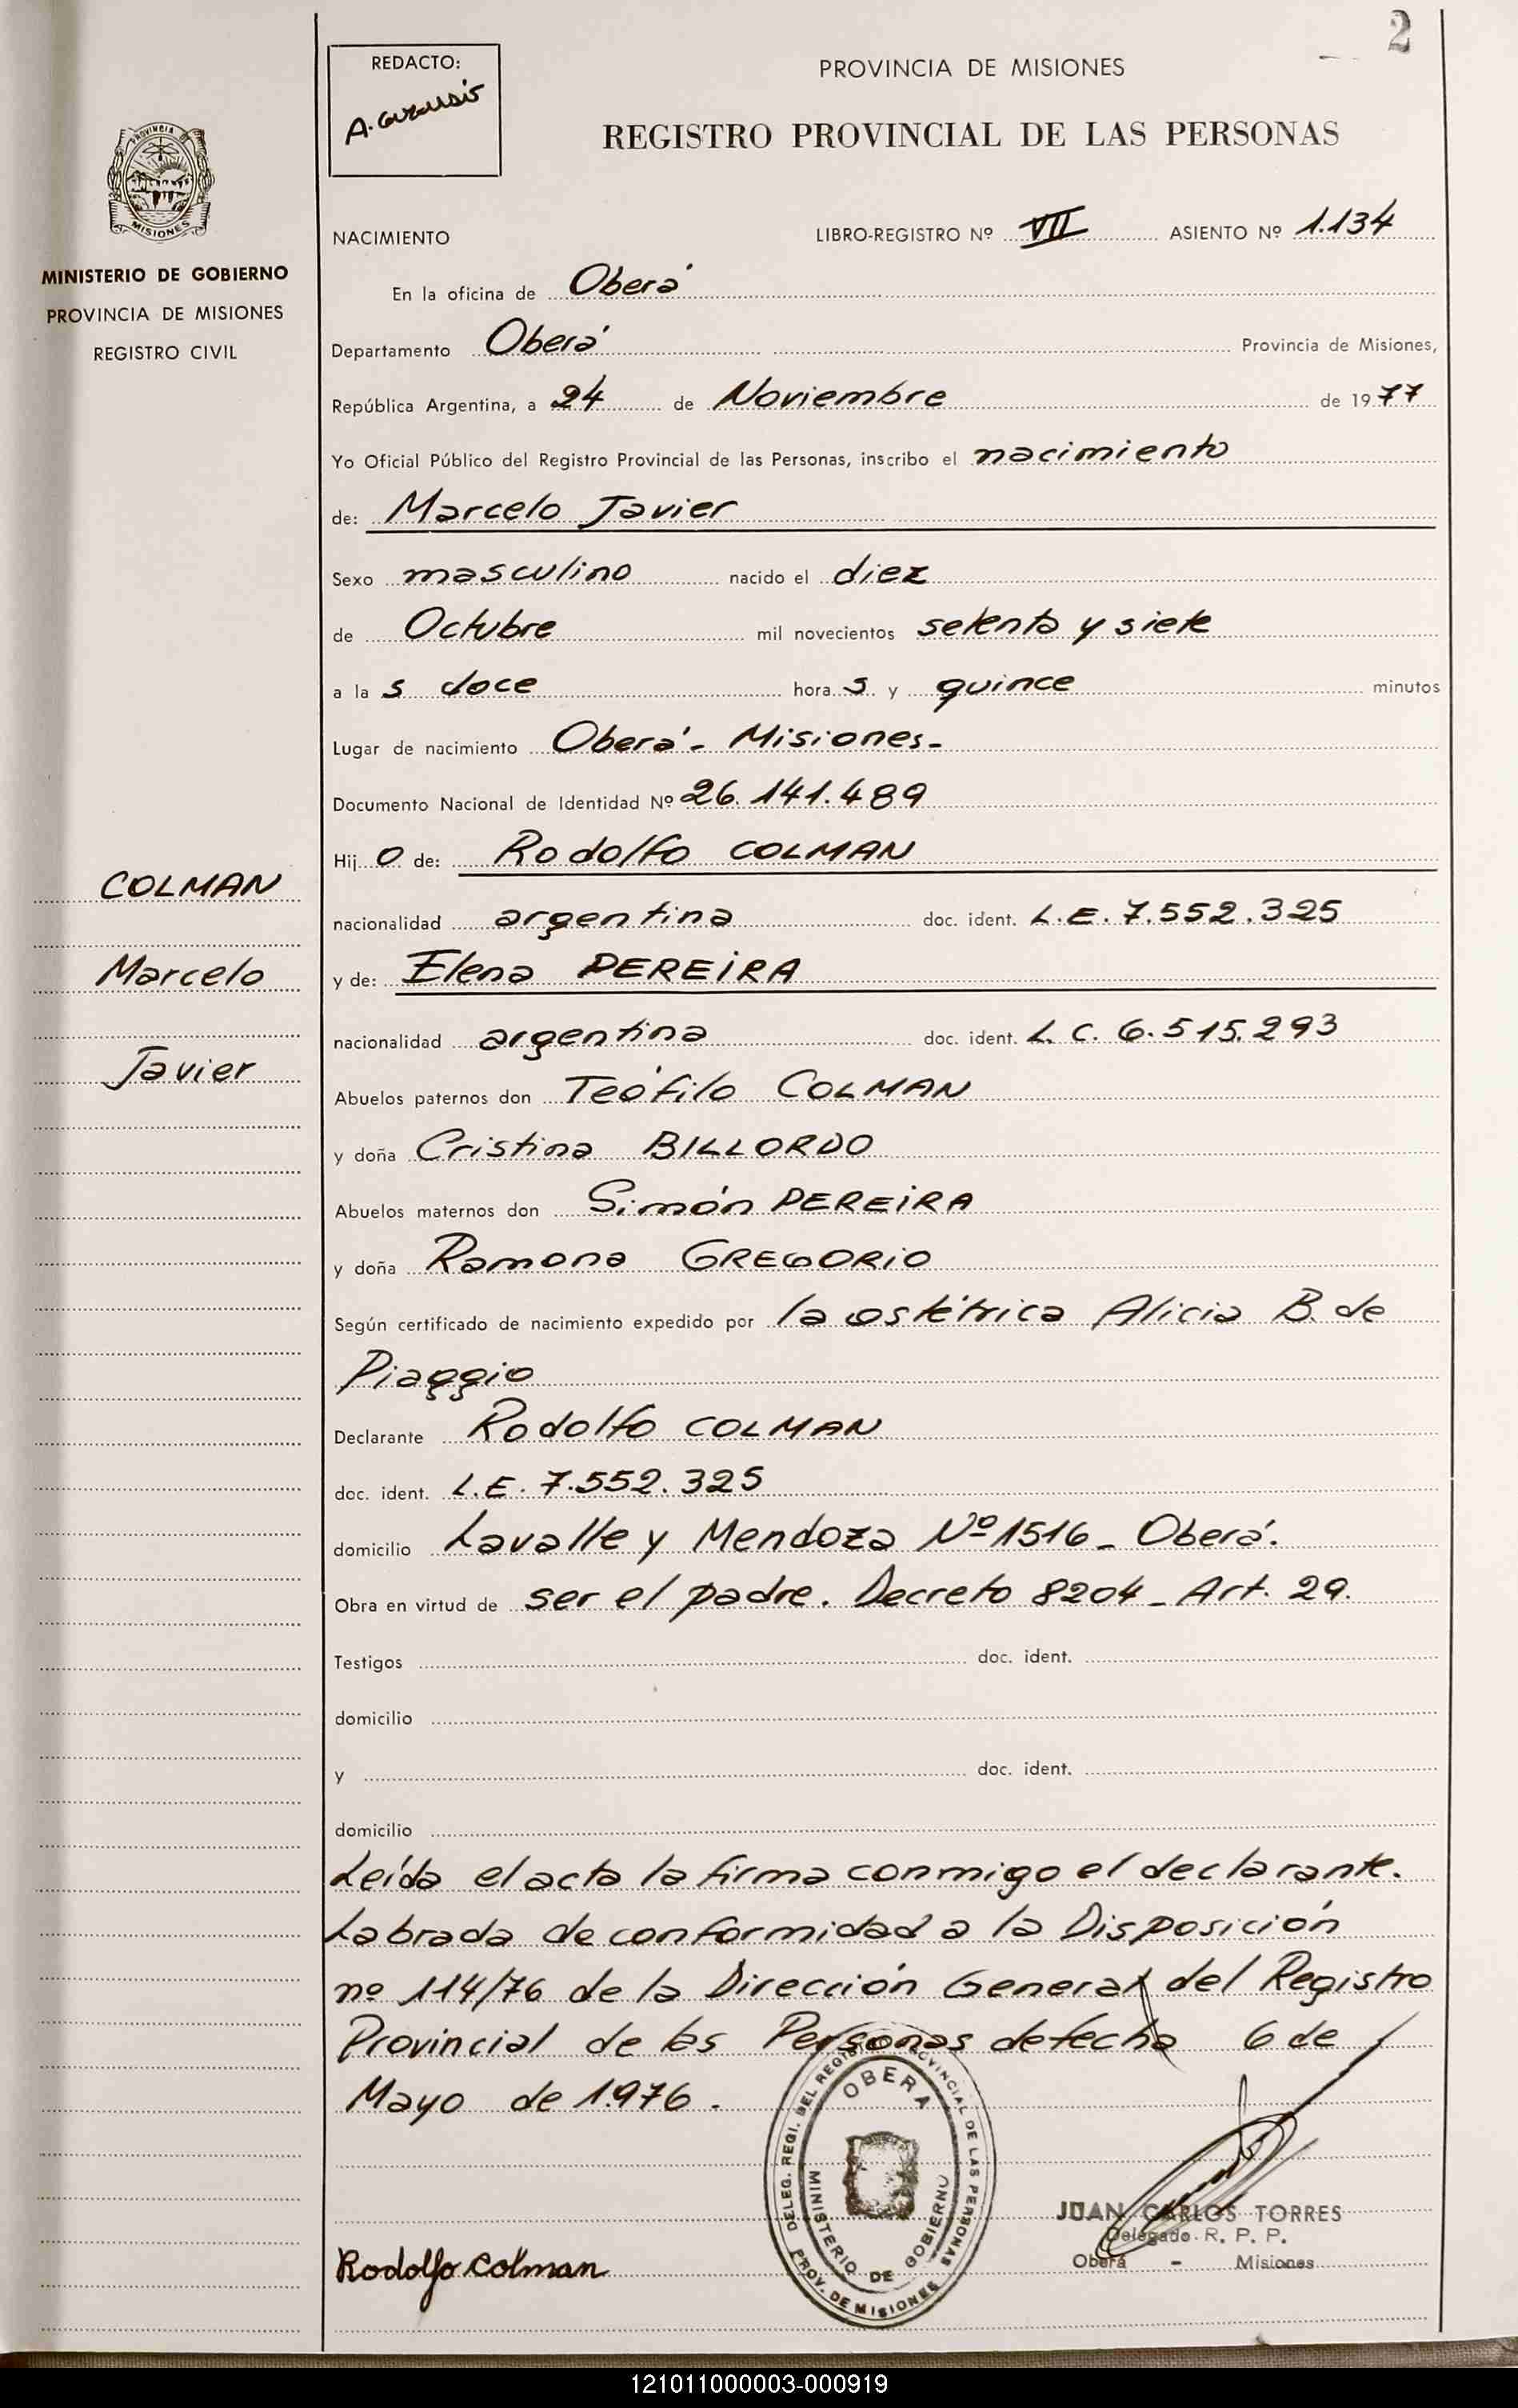 2
REDACTO:
PROVINCIA DE MISIONES
REGISTRO PROVINCIAL DE LAS PERSONAS
PROVINCIA DE
MISIONES
MINISTERIO DE GOBIERNO
PROVINCIA DE MISIONES
REGISTRO CIVIL
NACIMIENTO LIBRO-REGISTRO Nº VII ASIENTO Nº 1.134
En la oficina de Oberá
Departamento Oberá Provincia de Misiones,
República Argentina, a 24 de Noviembre de 1977
Yo Oficial Público del Registro Provincial de las Personas, inscribo el nacimiento
de: Marcelo Javier
Sexo masculino nacido el diez
de Octubre mil novecientos setenta y siete
a la s doce hora s y quince minutos
Lugar de nacimiento Oberá - Misiones -
Documento Nacional de Identidad Nº 26.141.489
Hij o de: Rodolfo COLMAN
COLMAN
nacionalidad argentina doc. ident. L.E. 7.552.325
Marcelo
y de: Elena PEREIRA
nacionalidad argentina doc. ident. L.C. 6.515.293
Javier
Abuelos paternos don Teófilo COLMAN
y doña Cristina BILLORDO
Abuelos maternos don Simón PEREIRA
y doña Ramona GREGORIO
Según certificado de nacimiento expedido por la ostétrica Alicia B. de
Piaggio
Declarante Rodolfo COLMAN
doc. ident. L.E. 7.552.325
domicilio Lavalle y Mendoza Nº 1516 - Oberá.
Obra en virtud de ser el padre. Decreto 8204 - Art. 29.
Testigos doc. ident.
domicilio
y doc. ident.
domicilio
Leída el acta la firma conmigo el declarante.
Labrada de conformidad a la Disposición
nº 114/76 de la Dirección General del Registro
Provincial de las Personas de fecha 6 de
Mayo de 1.976.
DELEG. REGI. DEL REGISTRO PROVINCIAL DE LAS PERSONAS
OBERA
MINISTERIO DE GOBIERNO
PROV. DE MISIONES
JUAN CARLOS TORRES
Delegado R. P. P.
Oberá - Misiones
Rodolfo Colman
121011000003-000919